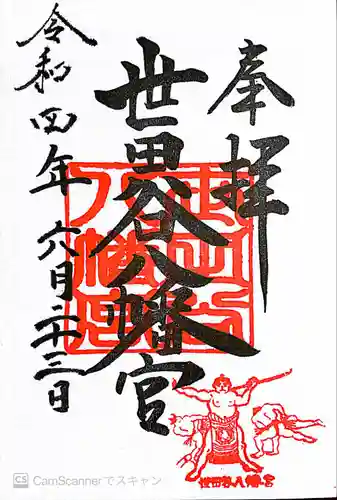 奉拝
世田谷八幡宮
令和四年六月二十三日
世田谷八幡宮
世田谷八幡宮
CS CamScannerでスキャン